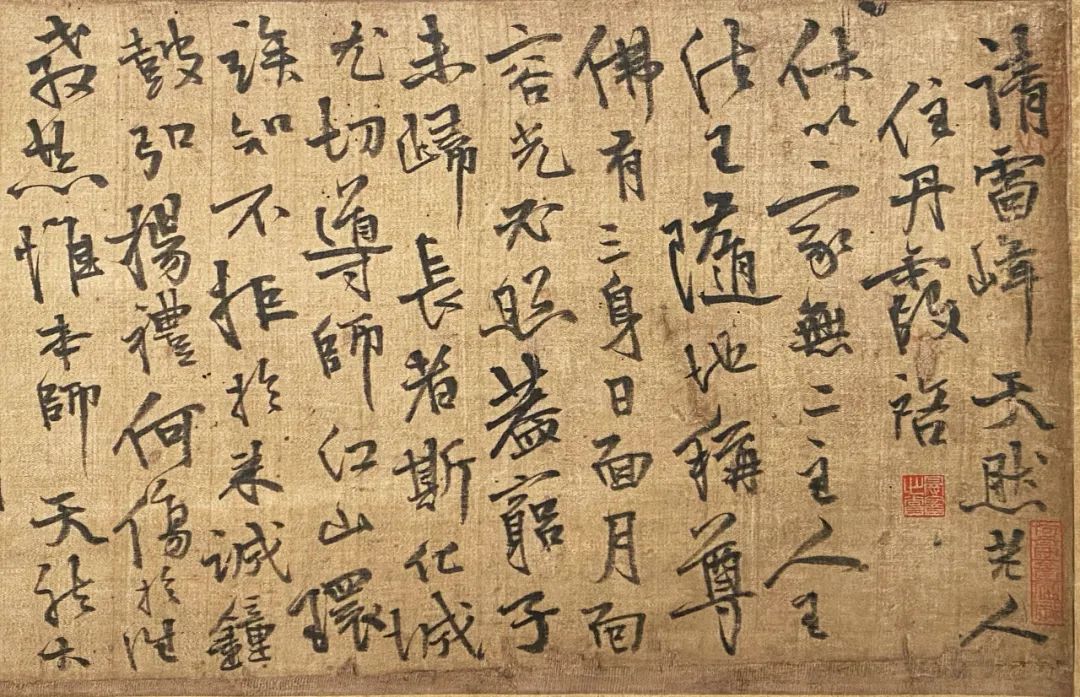 請雷峰天然老人
住丹霞啓
伏以家無二主人王
法王隨地稱尊
佛有三身日面月面
容光必照蓋窮子
未歸長者斯化城
尤切導師江山環
知不拒於來誠鐘
鼓弘揚禮何傷於往
教恭惟本師天然大